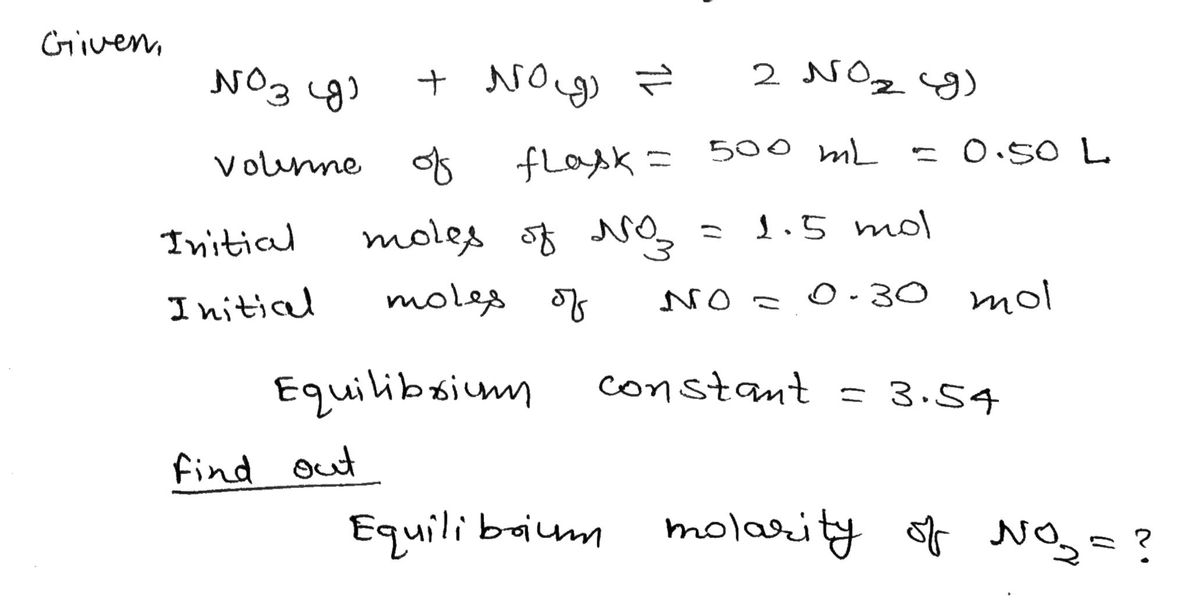 Given,
NO₃ (g) + NO(g) ⇌ 2 NO₂ (g)
Volume of flask = 500 mL = 0.50 L
Initial moles of NO₃ = 1.5 mol
Initial moles of NO = 0.30 mol
Equilibrium constant = 3.54
find out
Equilibrium molarity of NO₂ = ?